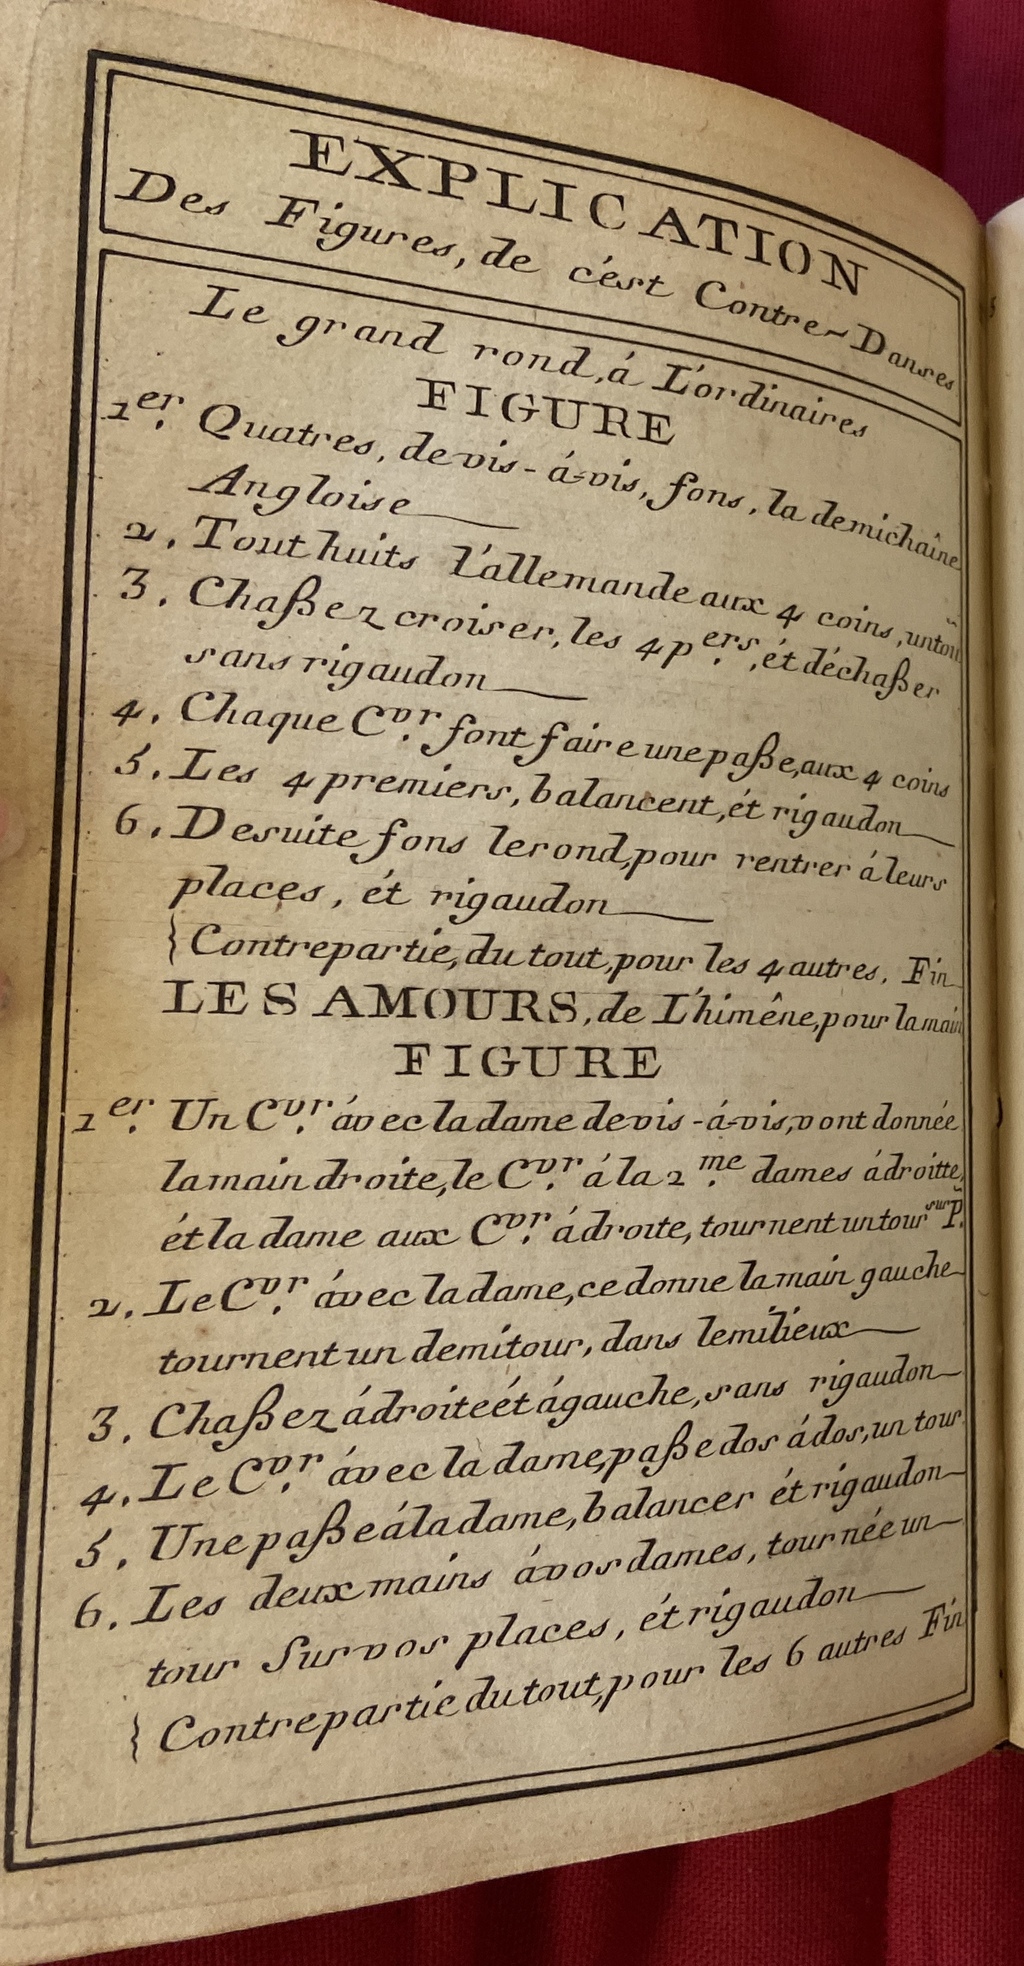 EXPLICATION
Des Figures, de c'ést Contre-Danses
Le grand rond, á L'ordinaires
FIGURE
1er. Quatres, de vis-á-vis, fons, la demi chaîne
Angloise
2. Tout huits l'allemande aux 4 coins, un tour
3. Chaßez croiser, les 4 pers., ét déchaßer
sans rigaudon
4. Chaque Cvr. font faire une paße, aux 4 coins
5. Les 4 premiers, balancent, ét rigaudon
6. De suite fons le rond, pour rentrer á leurs
places, ét rigaudon
{Contrepartie, du tout, pour les 4 autres. Fin
LES AMOURS, de L'himêne, pour la main
FIGURE
1er. Un Cvr. ávec la dame de vis-á-vis, vont donnée
la main droite, le Cvr. á la 2me. dames á droitte,
ét la dame aux Cvr. á droite, tournent un tour sur P.
2. Le Cvr. ávec la dame, ce donne la main gauche
tournent un demi tour, dans le milieux
3. Chaßez á droite ét á gauche, sans rigaudon
4. Le Cvr. ávec la dame, paße dos á dos, un tour
5. Une paße á la dame, balancer ét rigaudon
6. Les deux mains á vos dames, tournée un
tour Sur vos places, ét rigaudon
{Contrepartie du tout, pour les 6 autres Fin